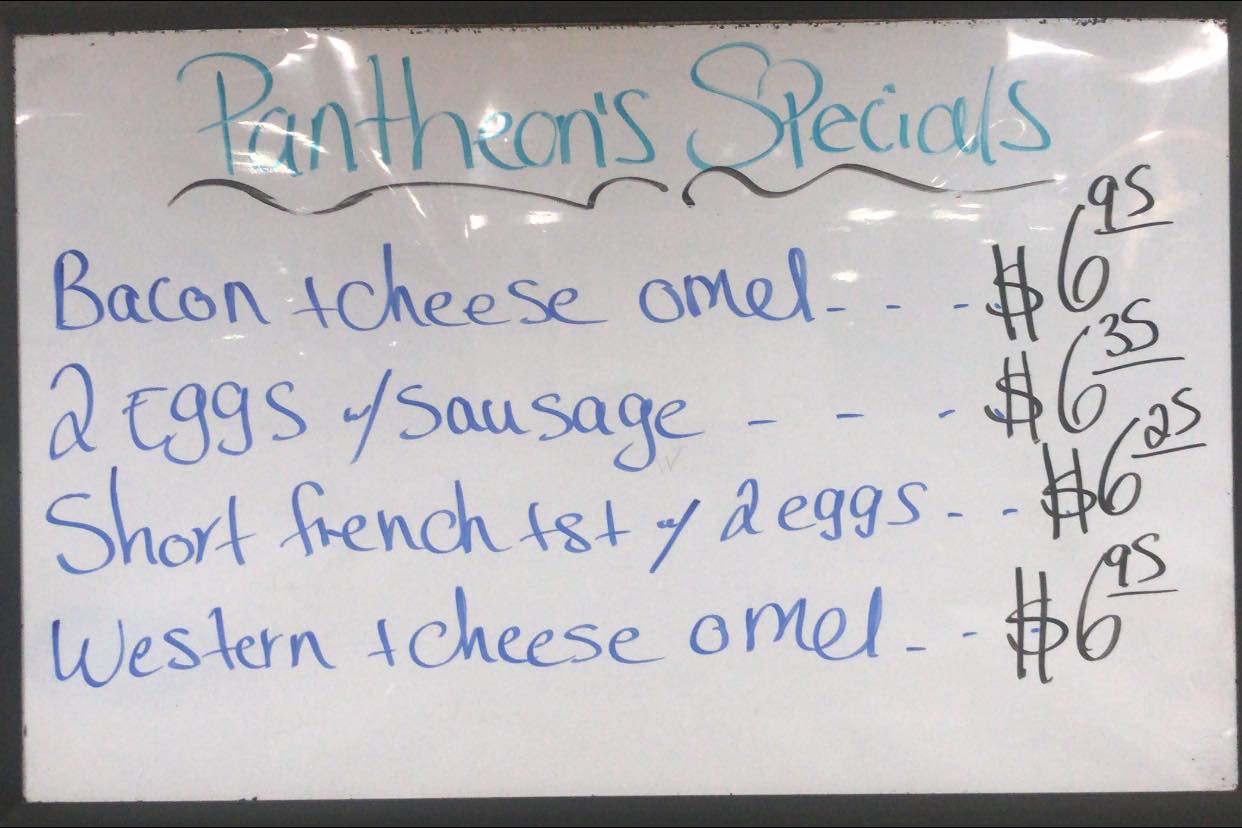 Pantheon's Specials
Bacon + cheese omel - - - $6.95
2 Eggs w/ sausage - - - $6.35
Short french tst w/ 2 eggs - - $6.25
Western + cheese omel - - $6.95